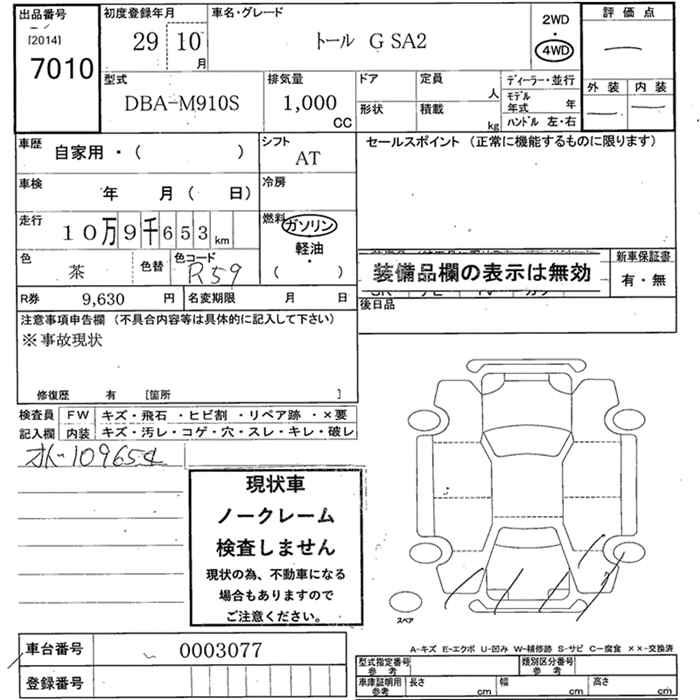 出品番号
[2014]
7010
初度登録年月
29 10 月
車名・グレード
トール G SA2
2WD
・
4WD
評価点
外装 内装
型式
DBA-M910S
排気量
1,000
CC
ドア
定員
人
形状
積載
kg
ディーラー・並行
モデル
年式 年
ハンドル 左・右
車歴
自家用・( )
シフト
AT
セールスポイント (正常に機能するものに限ります)
車検
年 月( 日)
冷房
走行
10万9千653km
燃料
ガソリン
軽油
・
( )
色
茶
色替
色コード
R59
装備品欄の表示は無効
新車保証書
有・無
R券 9,630 円
名変期限 月 日
後日品
注意事項申告欄 (不具合内容等は具体的に記入して下さい)
※事故現状
修復歴 有 [箇所 ]
検査員
記入欄
FW キズ・飛石 ・ヒビ割 ・リペア跡 ・×要
内装 キズ・汚レ・コゲ・穴・スレ・キレ・破レ
109654
現状車
ノークレーム
検査しません
現状の為、不動車になる
場合もありますので
ご注意ください。
スペア
車台番号 0003077
登録番号
A-キズ E-エクボ U-凹み W-補修跡 S-サビ C-腐食 ××-交換済
型式指定番号
参考
類別区分番号
参考
車庫証明用
参考
長さ cm
幅 cm
高さ cm